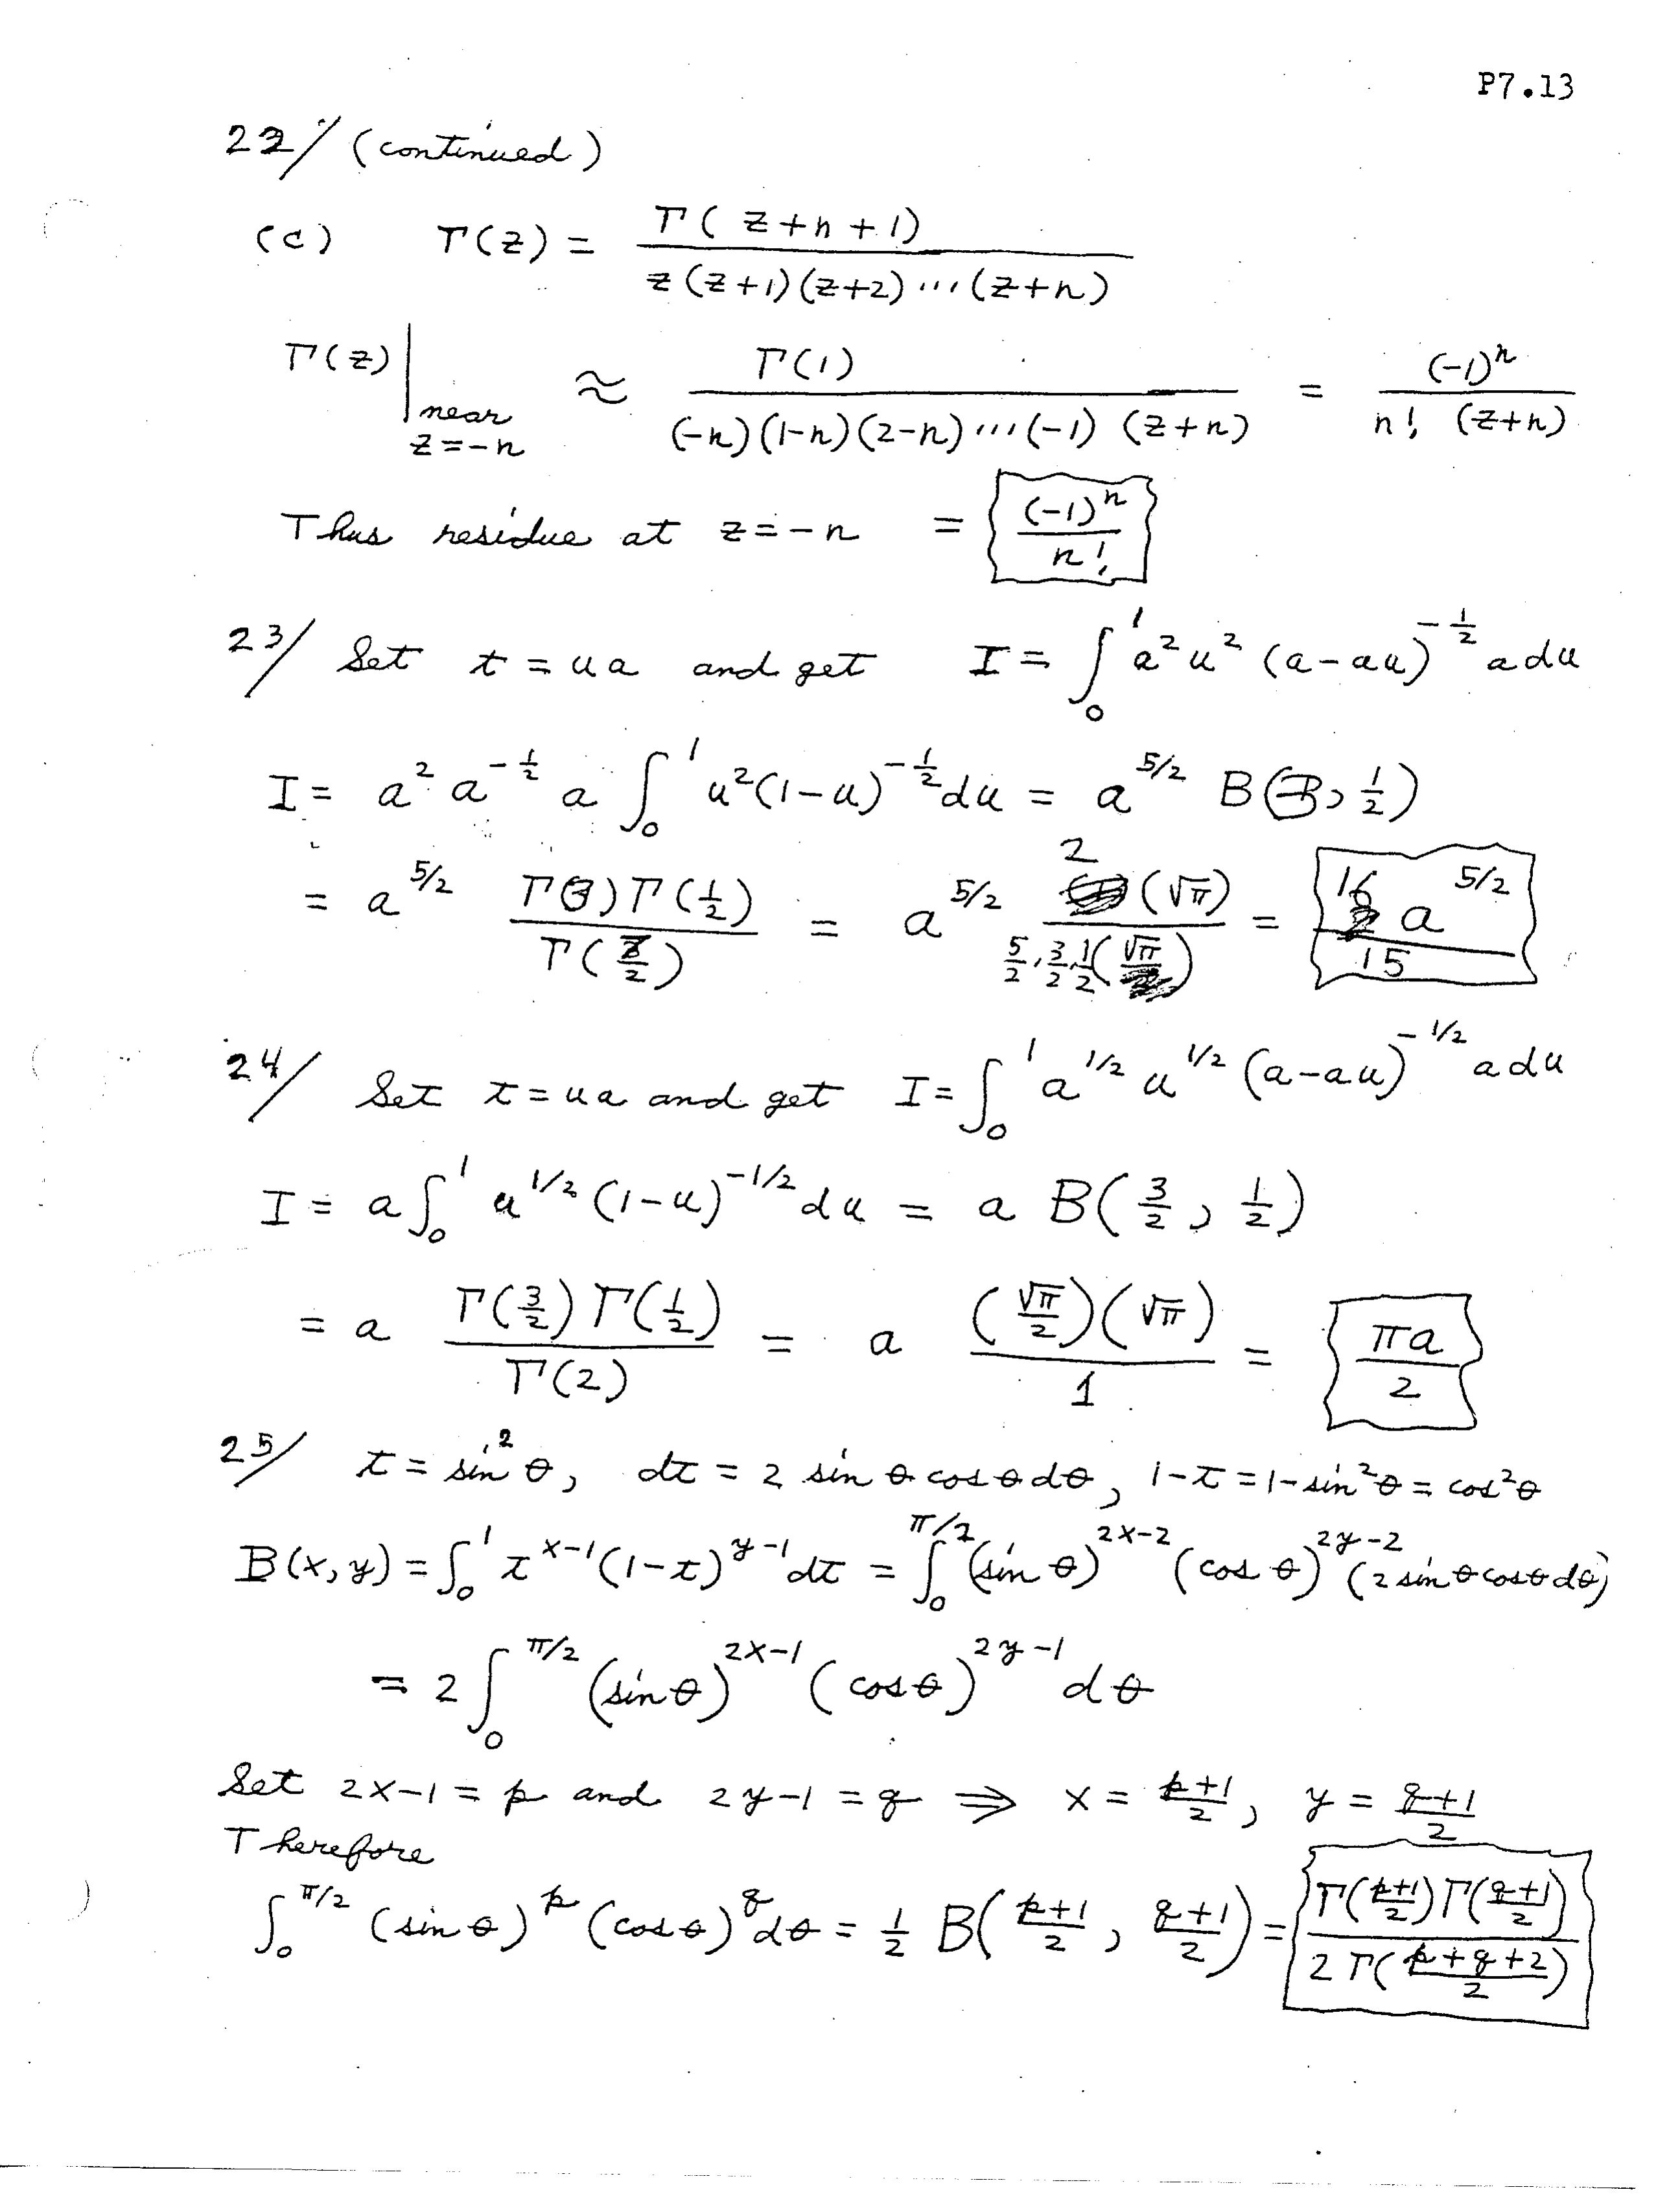 P7.13
22/ (continued)
(c) Γ(z) = Γ(z+n+1) / z(z+1)(z+2)···(z+n)
Γ(z)| near z=-n ≈ Γ(1) / (-n)(1-n)(2-n)···(-1) (z+n) = (-1)^n / n! (z+n)
Thus residue at z=-n = (-1)^n / n!
23/ Set t = ua and get I = ∫_0^1 a^2 u^2 (a-au)^{-1/2} a du
I = a^2 a^{-1/2} a ∫_0^1 u^2 (1-u)^{-1/2} du = a^{5/2} B(3, 1/2)
= a^{5/2} Γ(3)Γ(1/2) / Γ(7/2) = a^{5/2} 2(√π) / 5/2·3/2·1/2(√π) = 16 a^{5/2} / 15
24/ Set t = ua and get I = ∫_0^1 a^{1/2} u^{1/2} (a-au)^{-1/2} a du
I = a ∫_0^1 u^{1/2} (1-u)^{-1/2} du = a B(3/2, 1/2)
= a Γ(3/2)Γ(1/2) / Γ(2) = a (√π/2)(√π) / 1 = πa / 2
25/ t = sin^2 θ, dt = 2 sin θ cos θ dθ, 1-t = 1-sin^2 θ = cos^2 θ
B(x,y) = ∫_0^1 t^{x-1} (1-t)^{y-1} dt = ∫_0^{π/2} (sin θ)^{2x-2} (cos θ)^{2y-2} (2 sin θ cos θ dθ)
= 2 ∫_0^{π/2} (sin θ)^{2x-1} (cos θ)^{2y-1} dθ
Set 2x-1 = p and 2y-1 = q ⇒ x = p+1/2, y = q+1/2
Therefore
∫_0^{π/2} (sin θ)^p (cos θ)^q dθ = 1/2 B(p+1/2, q+1/2) = Γ(p+1/2)Γ(q+1/2) / 2Γ(p+q+2/2)